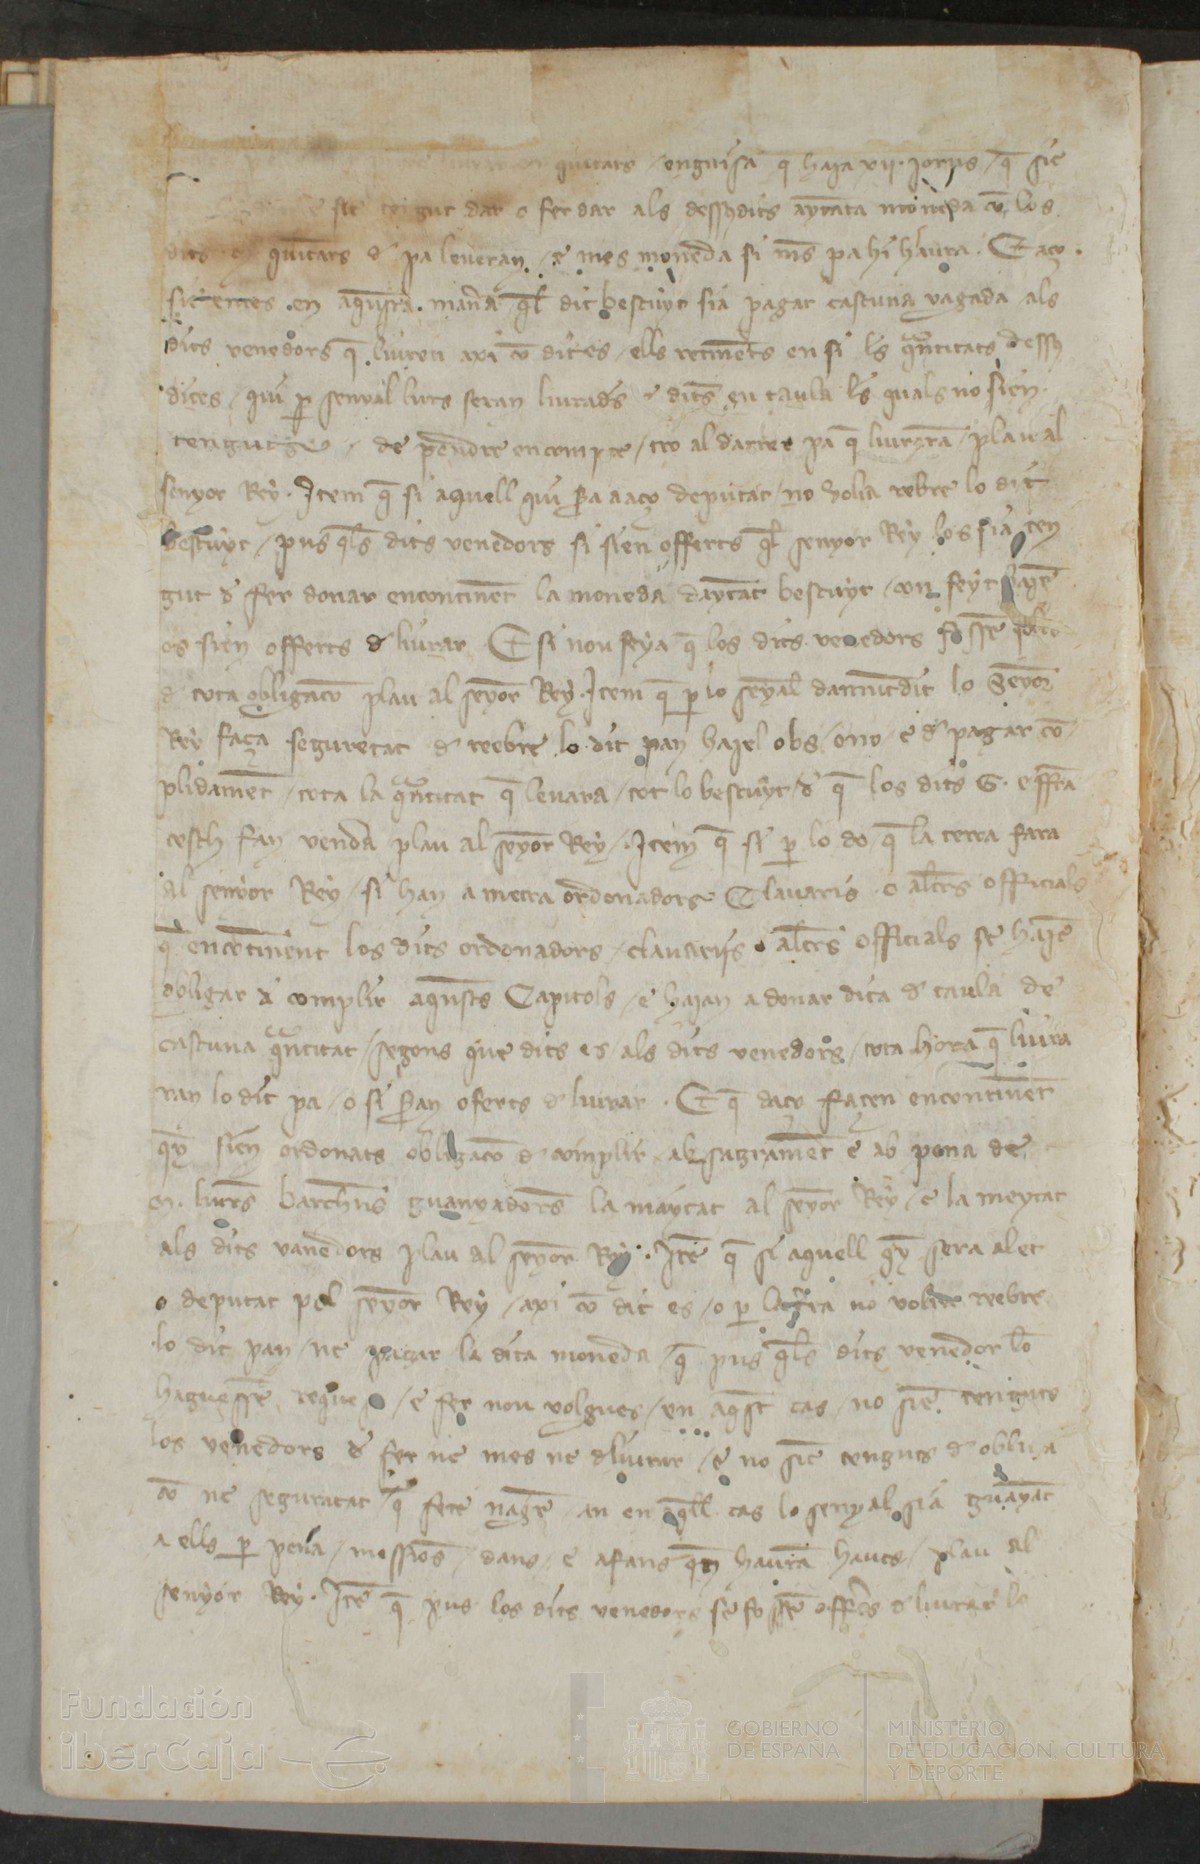 quintars / enguisa q̄ haia vij. jorns / q̄ sie
fer dar als dessusdits aytāta moneda cō los
dits quintars d pa leveran / e mes moneda si mēs pa hi haura. E aço.
en aquesta. manera q̄l dit bescuyt sia pagat cascuna vagada als
dits venedors q̄ liuren axi cō dit es / ells retinēts en si ls quātitats dessus
dites / qui p senyal lurs seran liurades e dits en taula ls quals no sien
tenguts de pendre en compte / tro al darrer pa q̄ liuraran / plau al
senyor Rey. Item q̄ si aquell qui ſera a aço deputat / no volia rebre lo dit
bescuyt / pus q̄ls dits venedors si sien offerts q̄l senyor Rey los sia ten
gut d fer donar encontinēt la moneda daytāt bescuyt / con feyt
os sien offerts d liurar E si nou feya q̄ los dits venedors
d tota obligacō plau al seyor Rey. Item q̄ p lo senyal damūtdit lo Seyor
Rey faça seguretat d reebre lo dit pan haiel obs / o no / e d pagar cō
plidamēt / tota la quātitat q̄ levara / tot lo bescuyt / d q̄ los dits G. e
fan venda plau al seyor Rey / Item q̄ si p lo do q̄ la terra fara
al senyor Rey / si han a metra ordonadors Clavaris o altrs officials
q̄ encōtinent los dits ordonadors / clavarijs o altrs officials se haiē
obligar a complir aquests Capitols / e haian a donar dita d taula de
cascuna quātitat / segons que dits es / als dits venedors / tota hora q̄ liura
ran lo dit pa / o si ſeran oferts d liurar. E q̄ daço façen encontinēt
q̄y sien ordonats obligacō d complir ab sagramēt e ab pena de
m. liurs barchns guanyadors la maytat al seyor Rey / e la meytat
als dits vanedors plau al seyor Rey. Itē q̄ si aquell q̄y sera alet
o deputat pel seyor Rey / axi cō dit es / o p la trra no volie reebre
lo dit pan / ne pagar la dita moneda / q̄ pus q̄ls dits venedor lo
haguessē request / e fer nou volgues / en aqst cas no siē tenguts
los venedors d fer ne mes ne dliurar / e no siē tenguts d obliga
cō ne seguratat / q̄ fete nagē an en aq̄ll cas lo senyal sia guāyat
a ells p pena / messions / dans / e afans q̄n haurā hauts / plau al
senyor Rey. Itē q̄ pus los dits venedors se fossē offerts d liurar lo
Fundación
iberCaja
GOBIERNO
DE ESPAÑA
MINISTERIO
DE EDUCACIÓN, CULTURA
Y DEPORTE